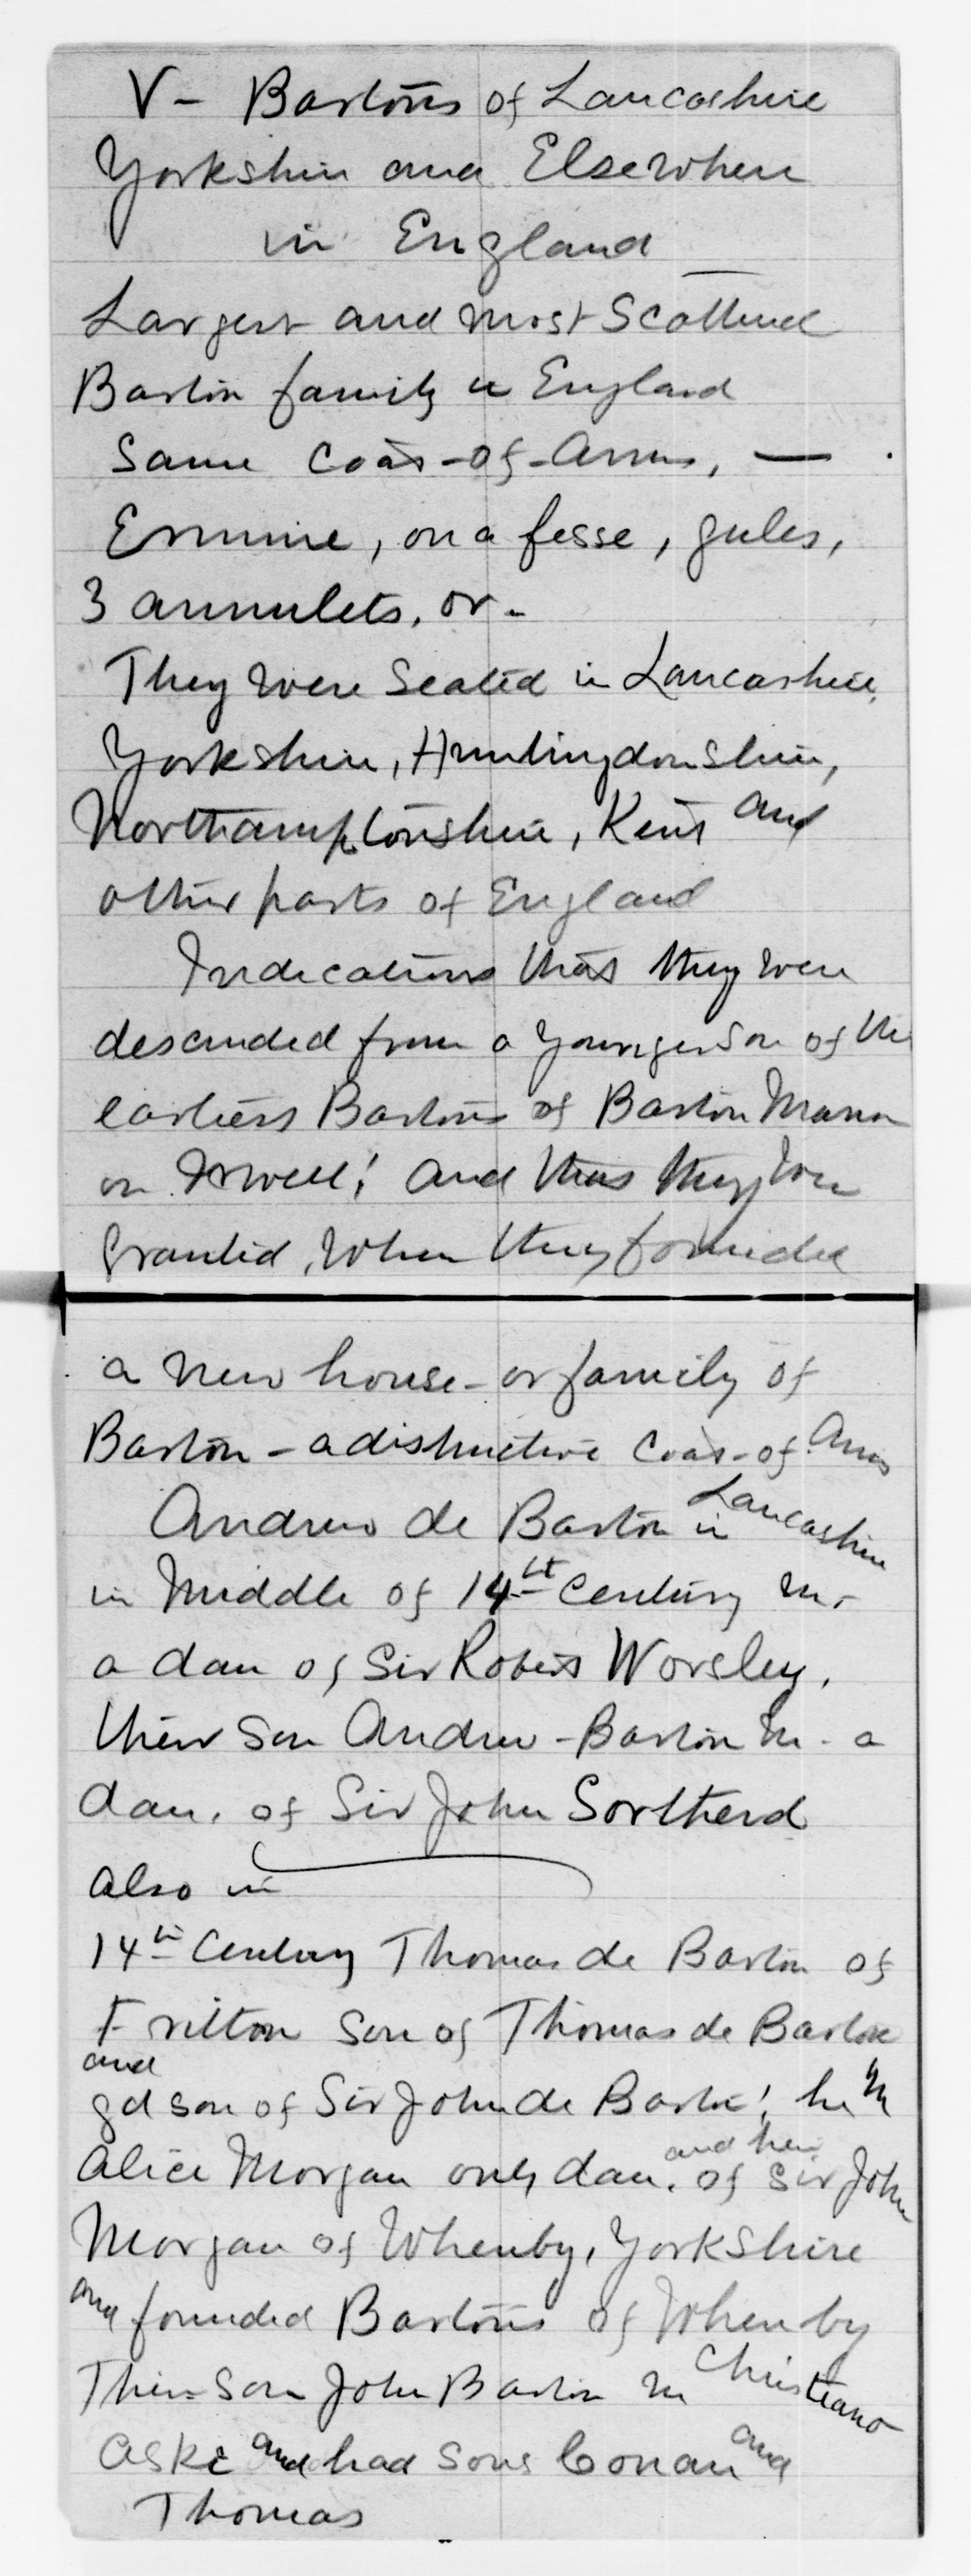 V - Bartons of Lancashire
Yorkshire and Elsewhere
in England
Largest and most Scattered
Barton family in England
Same Coat-of-Arms, —
Ermine, on a fesse, gules,
3 annulets, or -
They were Seated in Lancashire,
Yorkshire, Huntingdonshire,
Northamptonshire, Kent and
other parts of England
Indications that they were
descended from a younger son of the
earliest Bartons of Barton Manor
on Irwell; and that they were
granted, when they founded
a new house - or family of
Barton - a distinctive Coat-of-Arms
Andrew de Barton in Lancashire
in Middle of 14th Century m.
a dau of Sir Robert Worsley,
their son Andrew Barton m. a
dau. of Sir John Sortherd
also in
14th Century Thomas de Barton of
Fritton son of Thomas de Barton
and
gdson of Sir John de Barton; he m
Alice Morgan only dau. and heir of Sir John
Morgan of Whenby, Yorkshire
and founded Bartons of Whenby
Their son John Barton m Christiana
Aske and had sons Conan and
Thomas